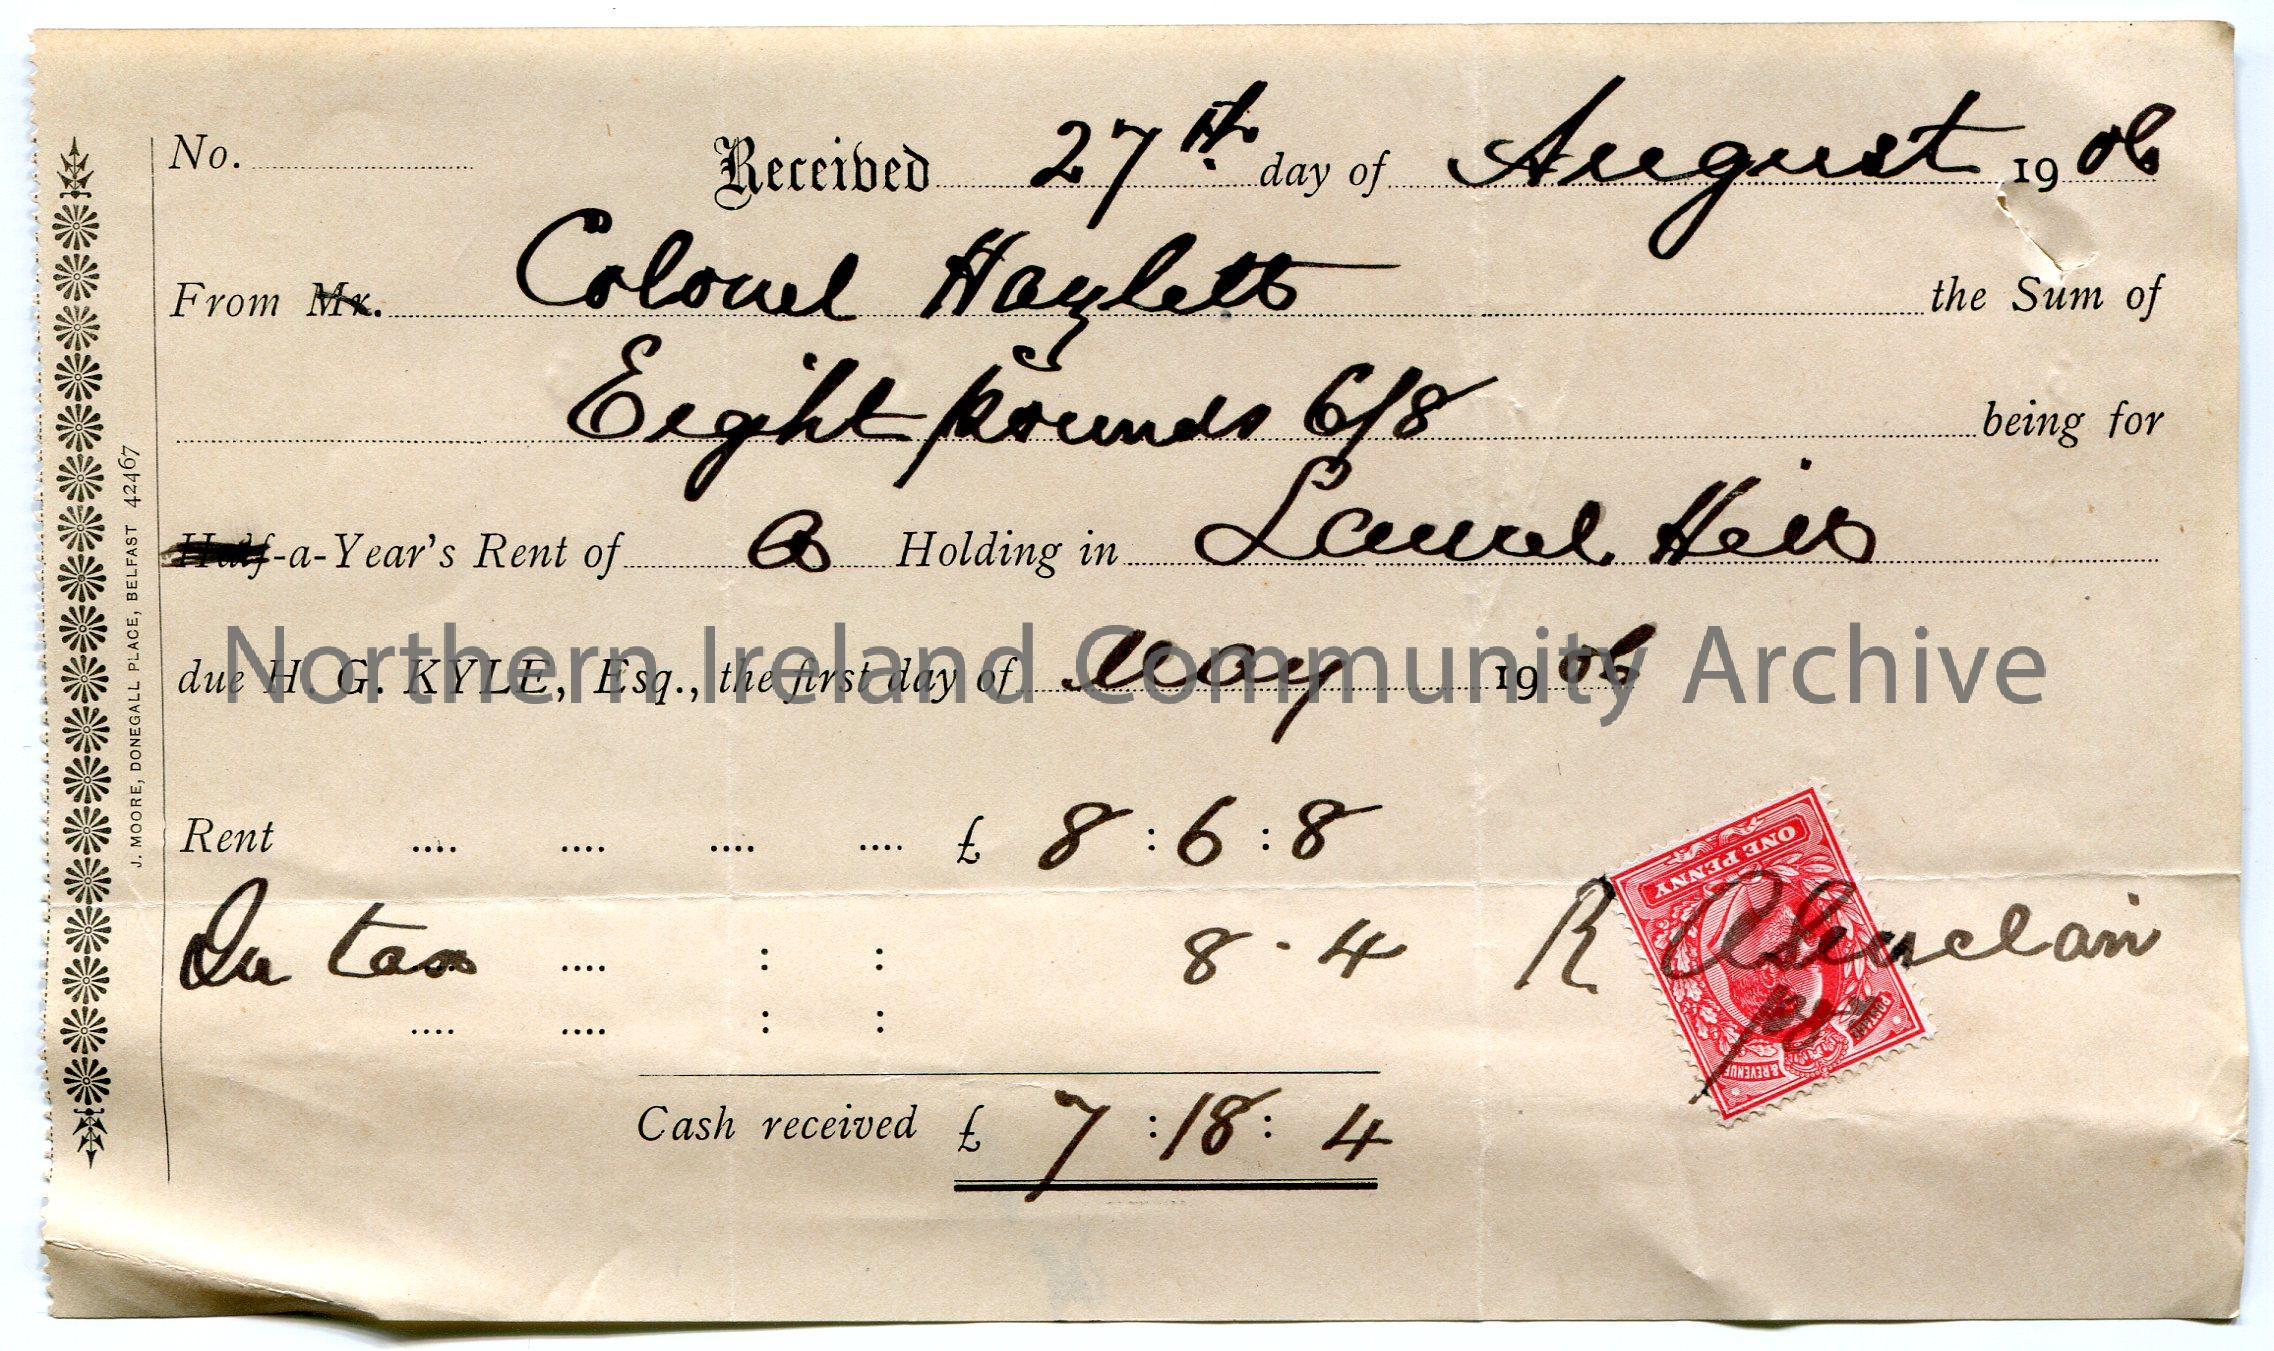 No. Received 27th day of August 1906
From Mr. Colonel Hazlett the Sum of
Eight pounds 6/8 being for
Half-a-Year's Rent of a Holding in Laurel Hill
due H. G. KYLE, Esq., the first day of May 1906
Northern Ireland Community Archive
Rent .... .... .... .... £ 8 : 6 : 8
In tax .... : : 8 - 4
.... .... : :
Cash received £ 7 : 18 : 4
R A Sinclair
ONE PENNY
POSTAGE & REVENUE
J. MOORE, DONEGALL PLACE, BELFAST 42467